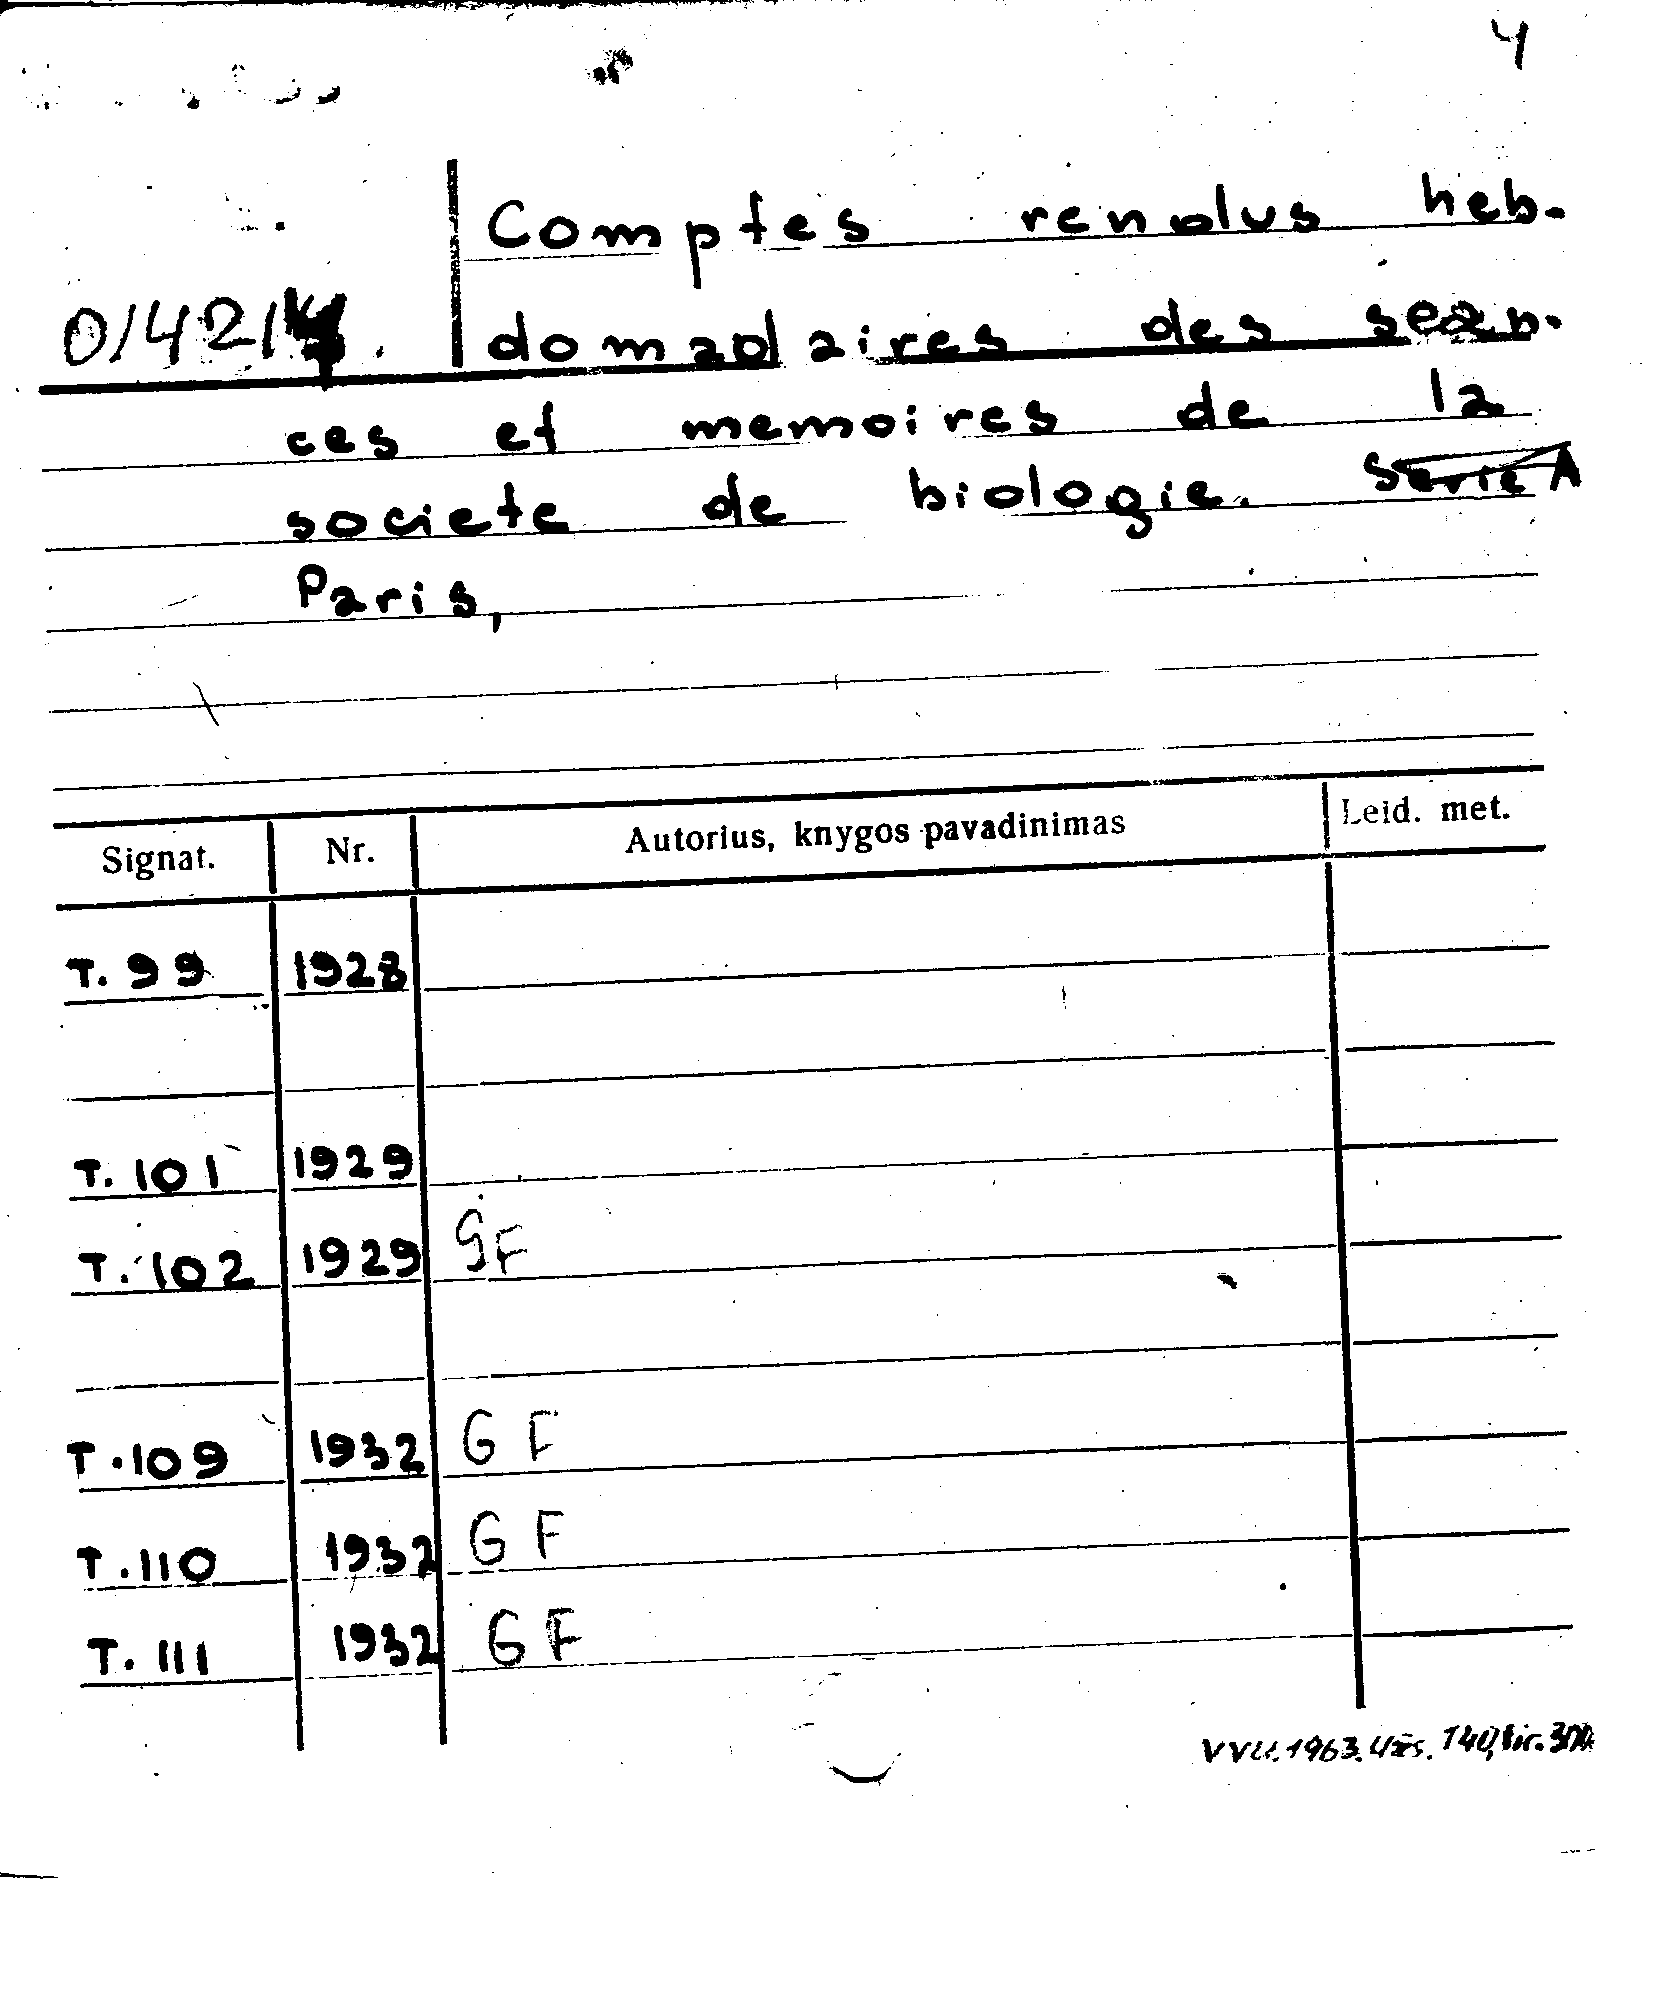 4
Comptes rendus heb-
0/421
domadaires des sean-
ces et memoires de la
societe de biologie. Serie A
Paris,
Signat. Nr. Autorius, knygos pavadinimas Leid. met.
T. 99 1928
T. 101 1929
T. 102 1929 GF
T. 109 1932 G F
T. 110 1932 G F
T. 111 1932 G F
VVU. 1963. Užs. 740, tir. 300